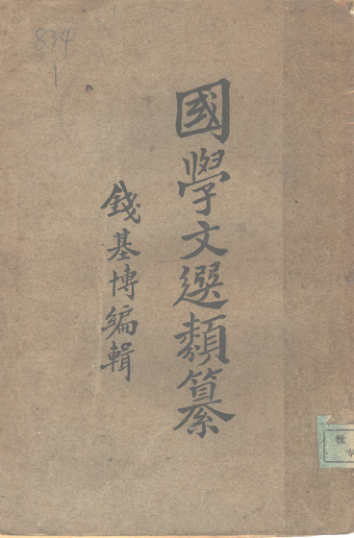 國學文選類纂
錢基博編輯
834
1
教